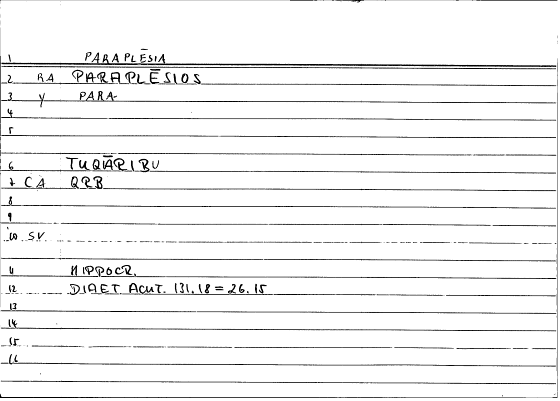 1 PARAPLĒSIA
2 RA PARAPLĒSIOS
3 Y PARA-
4
5
6 TUQĀRIBU
7 CA QRB
8
9
10 SV
11 HIPPOCR.
12 DIAET ACUT. 131.18 = 26.15
13
14
15
16